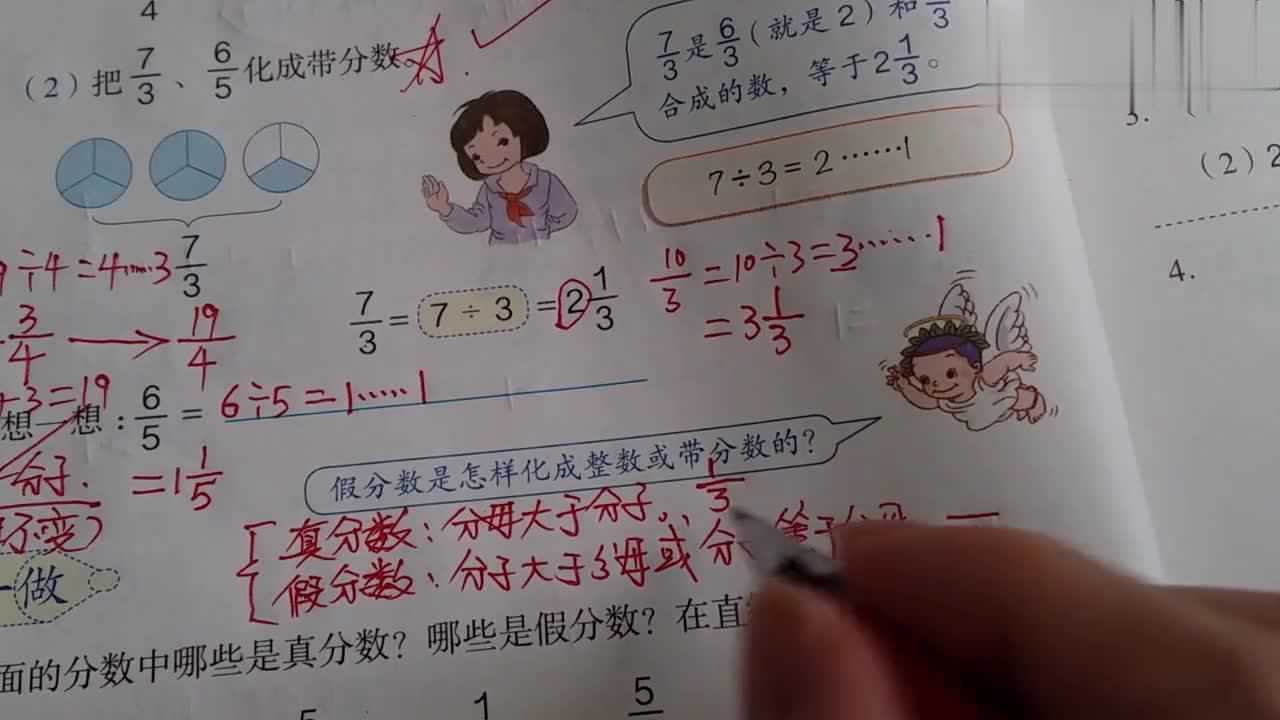 4
(2) 把 7/3 、 6/5 化成带分数。
7/3 是 6/3 (就是 2) 和 /3
合成的数，等于 2 1/3 。
7÷3=2……1
3.
(2) 2
4.
÷4=4……3
7/3
3/4 → 19/4
7/3 = 7÷3 = 2 1/3
10/3 = 10÷3 = 3……1
= 3 1/3
+3=19
想一想：6/5 = 6÷5=1……1
分子.
不变)
= 1 1/5
假分数是怎样化成整数或带分数的?
真分数：分母大于分子。 1/3
假分数：分子大于分母或 分 等于分母
做
面的分数中哪些是真分数? 哪些是假分数? 在直
5
1
5